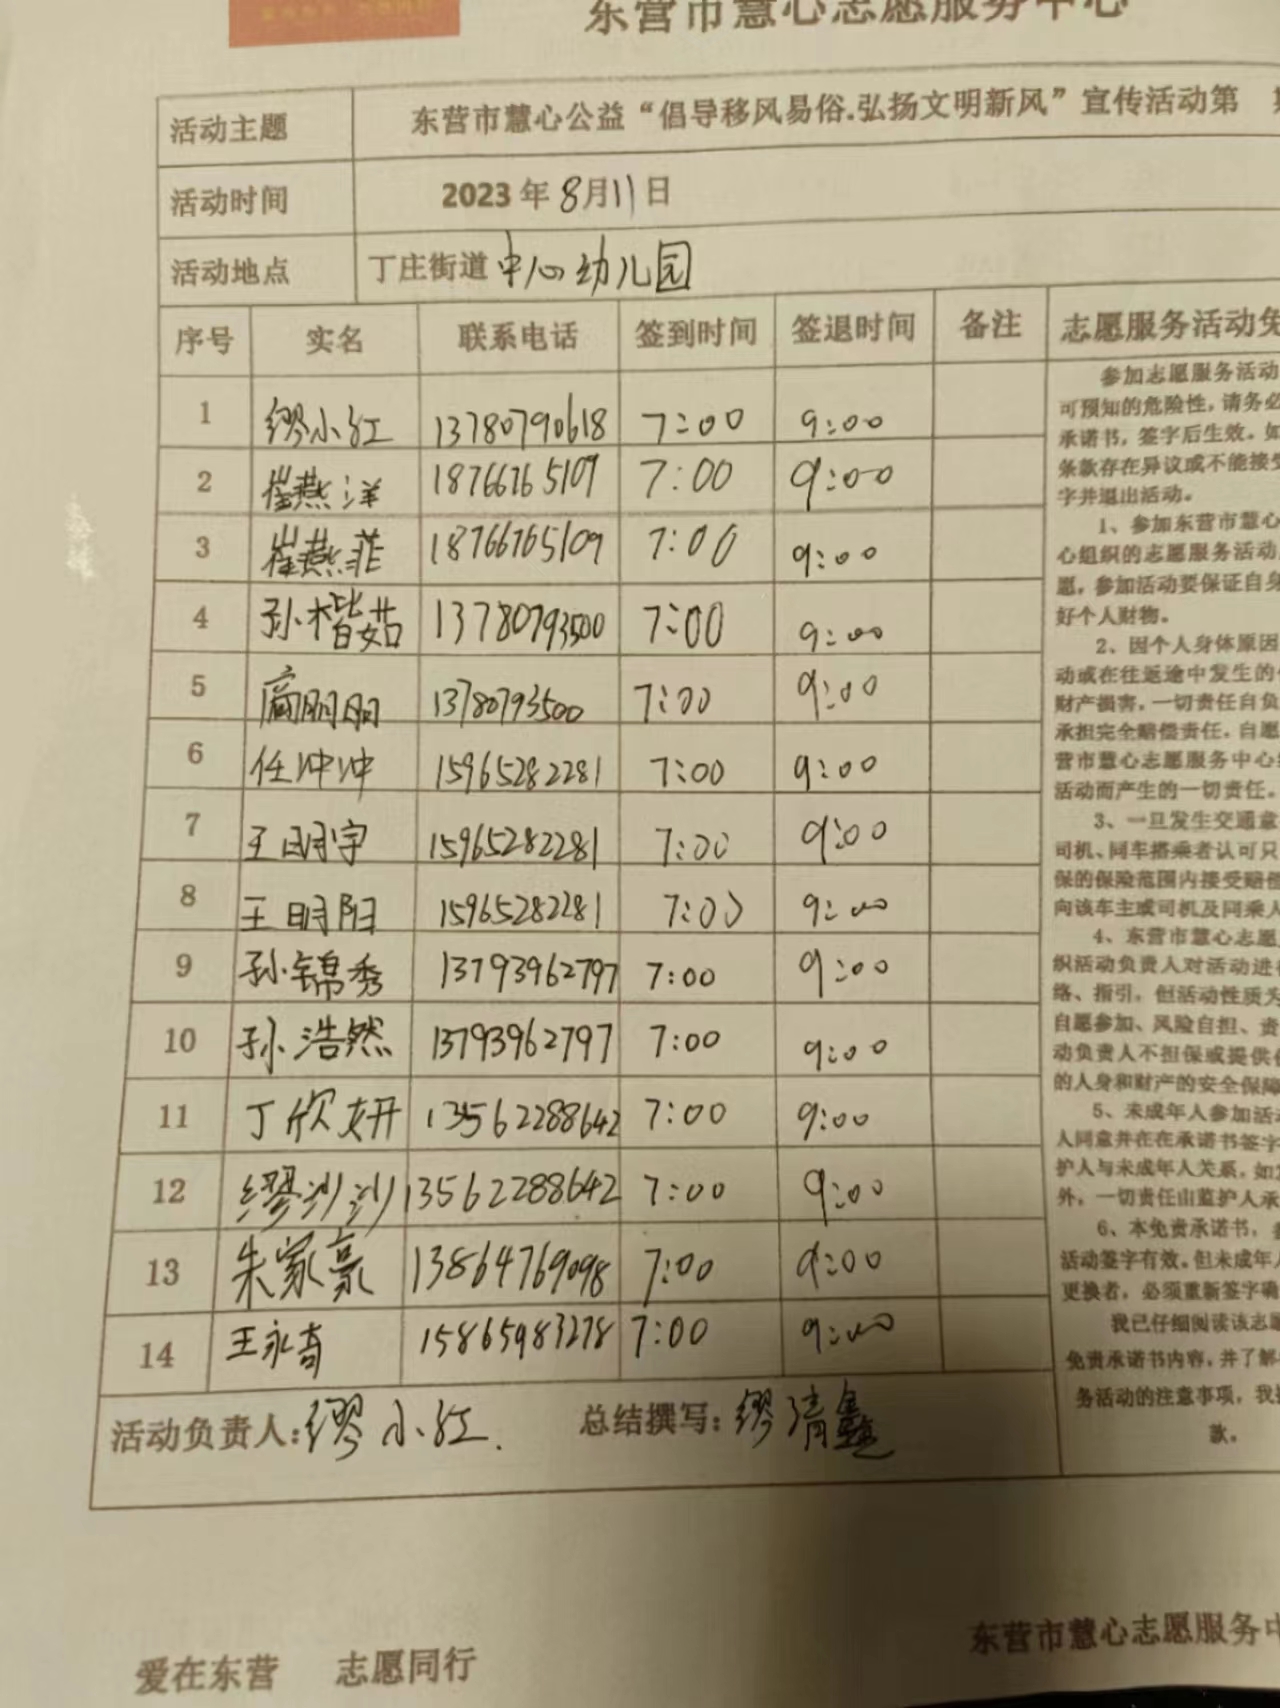 东营市慧心志愿服务中心
活动主题 东营市慧心公益“倡导移风易俗.弘扬文明新风”宣传活动第
活动时间 2023年8月11日
活动地点 丁庄街道中心幼儿园
序号 实名 联系电话 签到时间 签退时间 备注 志愿服务活动免
1 缪小红 13780790618 7:00 9:00
2 崔燕洋 18766765109 7:00 9:00
3 崔燕菲 18766765109 7:00 9:00
4 孙楷茹 13780793500 7:00 9:00
5 明明 13780793500 7:00 9:00
6 任冲冲 15965282281 7:00 9:00
7 王明宇 15965282281 7:00 9:00
8 王明阳 15965282281 7:00 9:00
9 孙锦秀 13793962797 7:00 9:00
10 孙浩然 13793962797 7:00 9:00
11 丁欣妍 13562288642 7:00 9:00
12 缪沙沙 13562288642 7:00 9:00
13 朱家豪 13864769098 7:00 9:00
14 王永奇 15865983278 7:00 9:00
参加志愿服务活动
可预知的危险性，请务必
承诺书，签字后生效。如
条款存在异议或不能接受
字并退出活动。
1、参加东营市慧心
心组织的志愿服务活动
愿，参加活动要保证自身
好个人财物。
2、因个人身体原因
动或在往返途中发生的
财产损害，一切责任自负
承担完全赔偿责任。自愿
营市慧心志愿服务中心
活动而产生的一切责任。
3、一旦发生交通意
司机、同车搭乘者认可只
保的保险范围内接受赔偿
向该车主或司机及同乘人
4、东营市慧心志愿
织活动负责人对活动进行
络、指引，但活动性质为
自愿参加、风险自担、责
动负责人不担保或提供
的人身和财产的安全保障
5、未成年人参加活动
人同意并在在承诺书签字
护人与未成年人关系，如
外，一切责任由监护人承
6、本免责承诺书，
活动签字有效。但未成年人
更换者，必须重新签字确
我已仔细阅读该志愿
免责承诺书内容，并了解
务活动的注意事项，我
款。
活动负责人：缪小红. 总结撰写：缪清鑫
东营市慧心志愿服务中
爱在东营 志愿同行